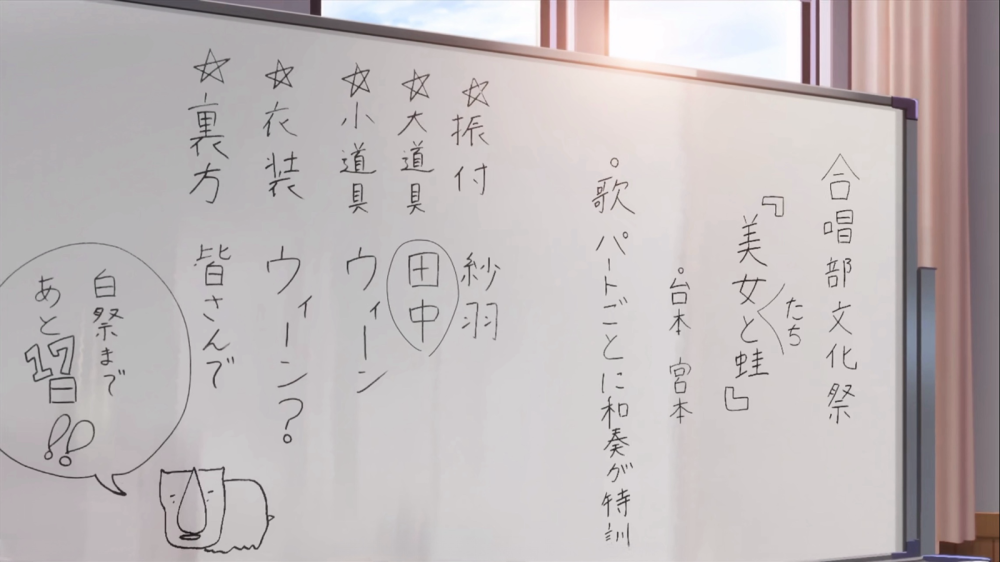 合唱部文化祭
『美女たちと蛙』
。台本 宮本
。歌 パートごとに和奏が特訓
☆振付 紗羽
☆大道具 田中
☆小道具 ウィーン
☆衣装 ウィーン?
☆裏方 皆さんで
白祭まで
あと17日!!